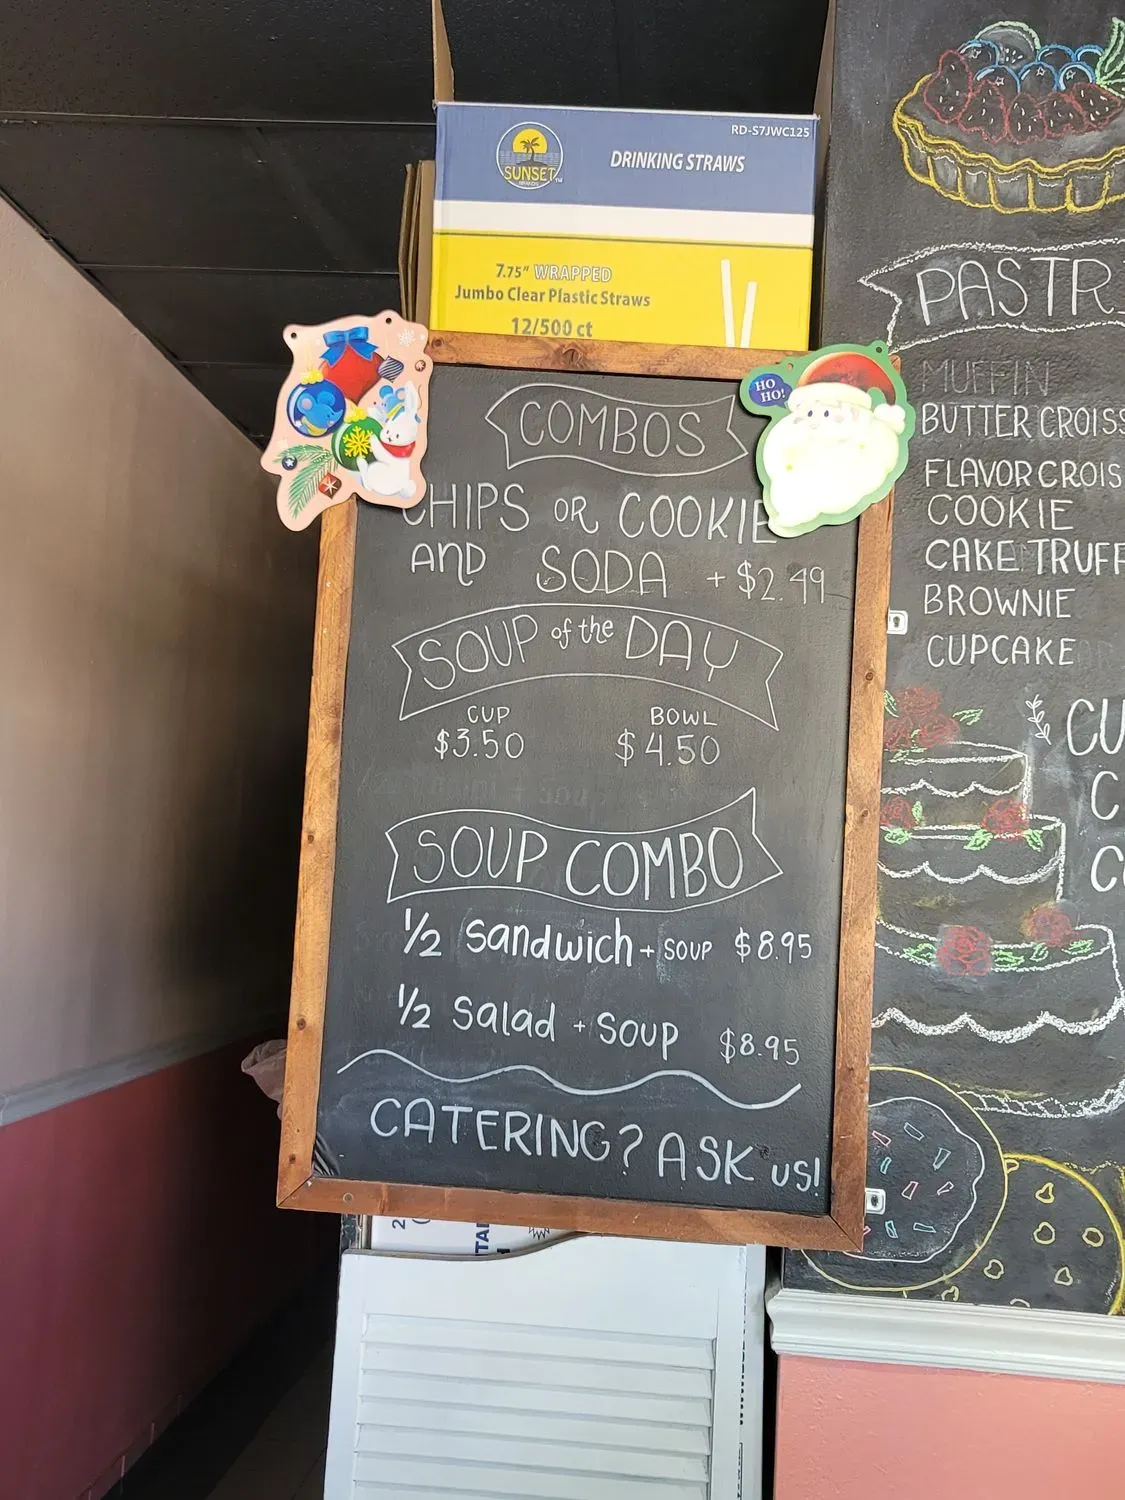 RD-S7JWC125
SUNSET
DRINKING STRAWS
7.75" WRAPPED
Jumbo Clear Plastic Straws
12/500 ct
HO
HO!
COMBOS
CHIPS OR COOKIE
AND SODA + $2.49
SOUP of the DAY
CUP BOWL
$3.50 $4.50
SOUP COMBO
1/2 Sandwich + SOUP $8.95
1/2 Salad + SOUP $8.95
CATERING? ASK us!
PASTRI
MUFFIN
BUTTER CROISS
FLAVOR CROIS
COOKIE
CAKE TRUFF
BROWNIE
CUPCAKE
CU
C
C